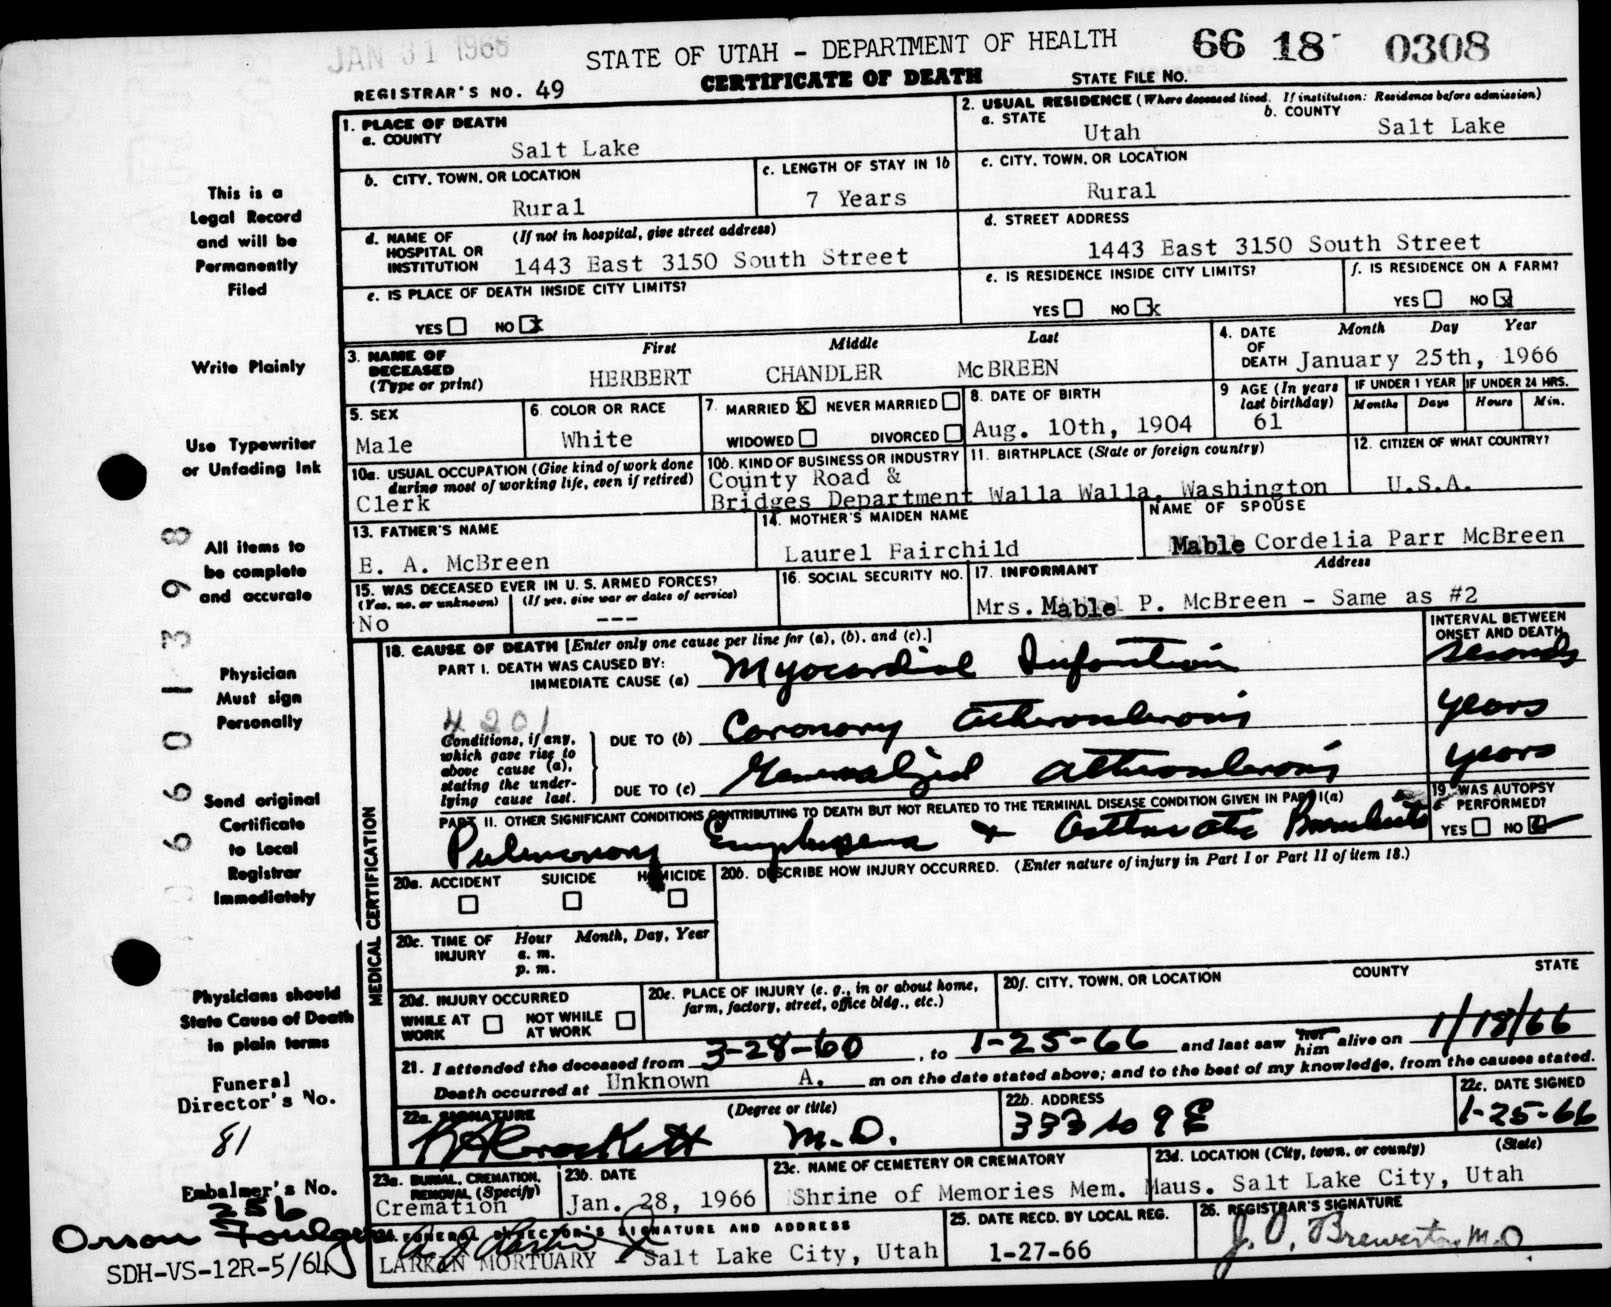 JAN 31 1966
STATE OF UTAH - DEPARTMENT OF HEALTH
66 18 0308
REGISTRAR'S NO. 49
CERTIFICATE OF DEATH
STATE FILE NO.
This is a
Legal Record
and will be
Permanently
Filed
Write Plainly
Use Typewriter
or Unfading Ink
All items to
be complete
and accurate
Physician
Must sign
Personally
Send original
Certificate
to Local
Registrar
Immediately
Physicians should
State Cause of Death
in plain terms
Funeral
Director's No.
81
Embalmer's No.
256
Orson Foulger
SDH-VS-12R-5/64
066013998
1. PLACE OF DEATH
a. COUNTY
Salt Lake
2. USUAL RESIDENCE (Where deceased lived. If institution: Residence before admission)
a. STATE
Utah
b. COUNTY
Salt Lake
b. CITY, TOWN, OR LOCATION
Rural
c. LENGTH OF STAY IN 1b
7 Years
c. CITY, TOWN, OR LOCATION
Rural
d. NAME OF HOSPITAL OR INSTITUTION
(If not in hospital, give street address)
1443 East 3150 South Street
d. STREET ADDRESS
1443 East 3150 South Street
e. IS PLACE OF DEATH INSIDE CITY LIMITS?
YES NO x
e. IS RESIDENCE INSIDE CITY LIMITS?
YES NO x
f. IS RESIDENCE ON A FARM?
YES NO x
3. NAME OF DECEASED
(Type or print)
First Middle Last
HERBERT CHANDLER McBREEN
4. DATE OF DEATH
Month Day Year
January 25th, 1966
5. SEX
Male
6. COLOR OR RACE
White
7. MARRIED X NEVER MARRIED
WIDOWED DIVORCED
8. DATE OF BIRTH
Aug. 10th, 1904
9 AGE (In years last birthday)
61
IF UNDER 1 YEAR
Months Days
IF UNDER 24 HRS.
Hours Min.
10a. USUAL OCCUPATION (Give kind of work done during most of working life, even if retired)
Clerk
10b. KIND OF BUSINESS OR INDUSTRY
County Road &
Bridges Department
11. BIRTHPLACE (State or foreign country)
Walla Walla, Washington
12. CITIZEN OF WHAT COUNTRY?
U.S.A.
13. FATHER'S NAME
E. A. McBreen
14. MOTHER'S MAIDEN NAME
Laurel Fairchild
NAME OF SPOUSE
Mable Cordelia Parr McBreen
15. WAS DECEASED EVER IN U. S. ARMED FORCES?
(Yes, no, or unknown) (If yes, give war or dates of service)
No ---
16. SOCIAL SECURITY NO.
17. INFORMANT Address
Mrs. Mable P. McBreen - Same as #2
18. CAUSE OF DEATH [Enter only one cause per line for (a), (b), and (c).]
INTERVAL BETWEEN ONSET AND DEATH
PART I. DEATH WAS CAUSED BY:
IMMEDIATE CAUSE (a) Myocardial Infarction seconds
4201
Conditions, if any,
which gave rise to
above cause (a),
stating the under-
lying cause last.
DUE TO (b) Coronary atherosclerosis years
DUE TO (c) Generalized atherosclerosis years
PART II. OTHER SIGNIFICANT CONDITIONS CONTRIBUTING TO DEATH BUT NOT RELATED TO THE TERMINAL DISEASE CONDITION GIVEN IN PART I(a)
Pulmonary Emphysema + asthmatic Bronchitis
19. WAS AUTOPSY PERFORMED?
YES NO
MEDICAL CERTIFICATION
20a. ACCIDENT SUICIDE HOMICIDE
20b. DESCRIBE HOW INJURY OCCURRED. (Enter nature of injury in Part I or Part II of item 18.)
20c. TIME OF INJURY
Hour Month, Day, Year
a. m.
p. m.
20d. INJURY OCCURRED
WHILE AT WORK NOT WHILE AT WORK
20e. PLACE OF INJURY (e. g., in or about home, farm, factory, street, office bldg., etc.)
20f. CITY, TOWN, OR LOCATION COUNTY STATE
21. I attended the deceased from 3-28-60, to 1-25-66 and last saw her him alive on 1/18/66
Death occurred at Unknown A. m on the date stated above; and to the best of my knowledge, from the causes stated.
22a. SIGNATURE (Degree or title)
Crockett M.D.
22b. ADDRESS
333 so 9 E
22c. DATE SIGNED
1-25-66
23a. BURIAL, CREMATION, REMOVAL (Specify)
Cremation
23b. DATE
Jan. 28, 1966
23c. NAME OF CEMETERY OR CREMATORY
Shrine of Memories Mem. Maus.
23d. LOCATION (City, town, or county) (State)
Salt Lake City, Utah
24. FUNERAL DIRECTOR'S SIGNATURE AND ADDRESS
LARKIN MORTUARY - Salt Lake City, Utah
25. DATE RECD. BY LOCAL REG.
1-27-66
26. REGISTRAR'S SIGNATURE
J. O. Brewerton M.D.